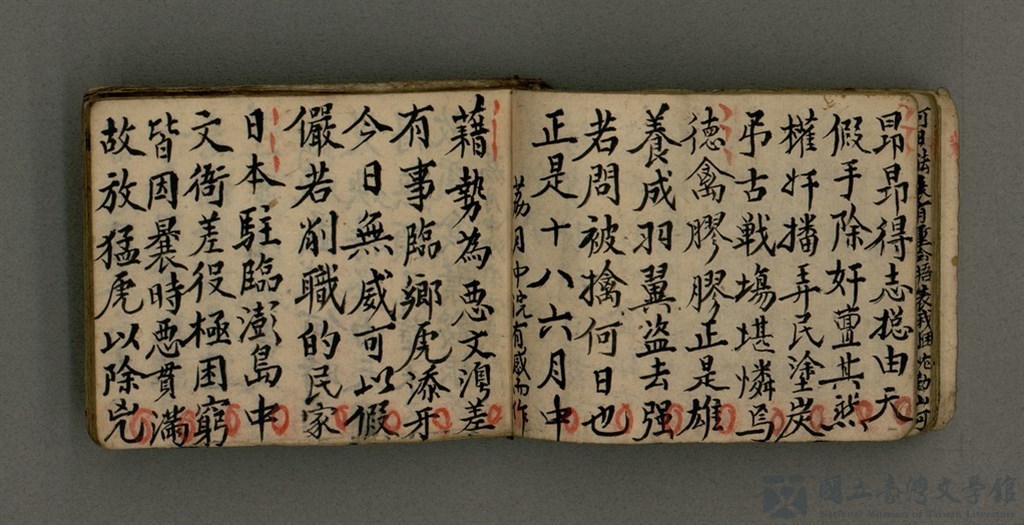 昂昂得志摠由天
假手除奸亶其然
權奸播弄民塗炭
弔古戰場堪憐焉
德禽膠膠正是雄
養成羽翼盗去强
若問被擒何日也
正是十八六月中
荔月中浣有感而作
藉勢為惡文澚差
有事臨鄉虎添牙
今日無威可以假
儼若削職的民家
日本駐臨澎島中
文衙差役極困窮
皆因曩時惡貫滿
故放猛虎以除兇
國立臺灣文學館
National Museum of Taiwan Literature